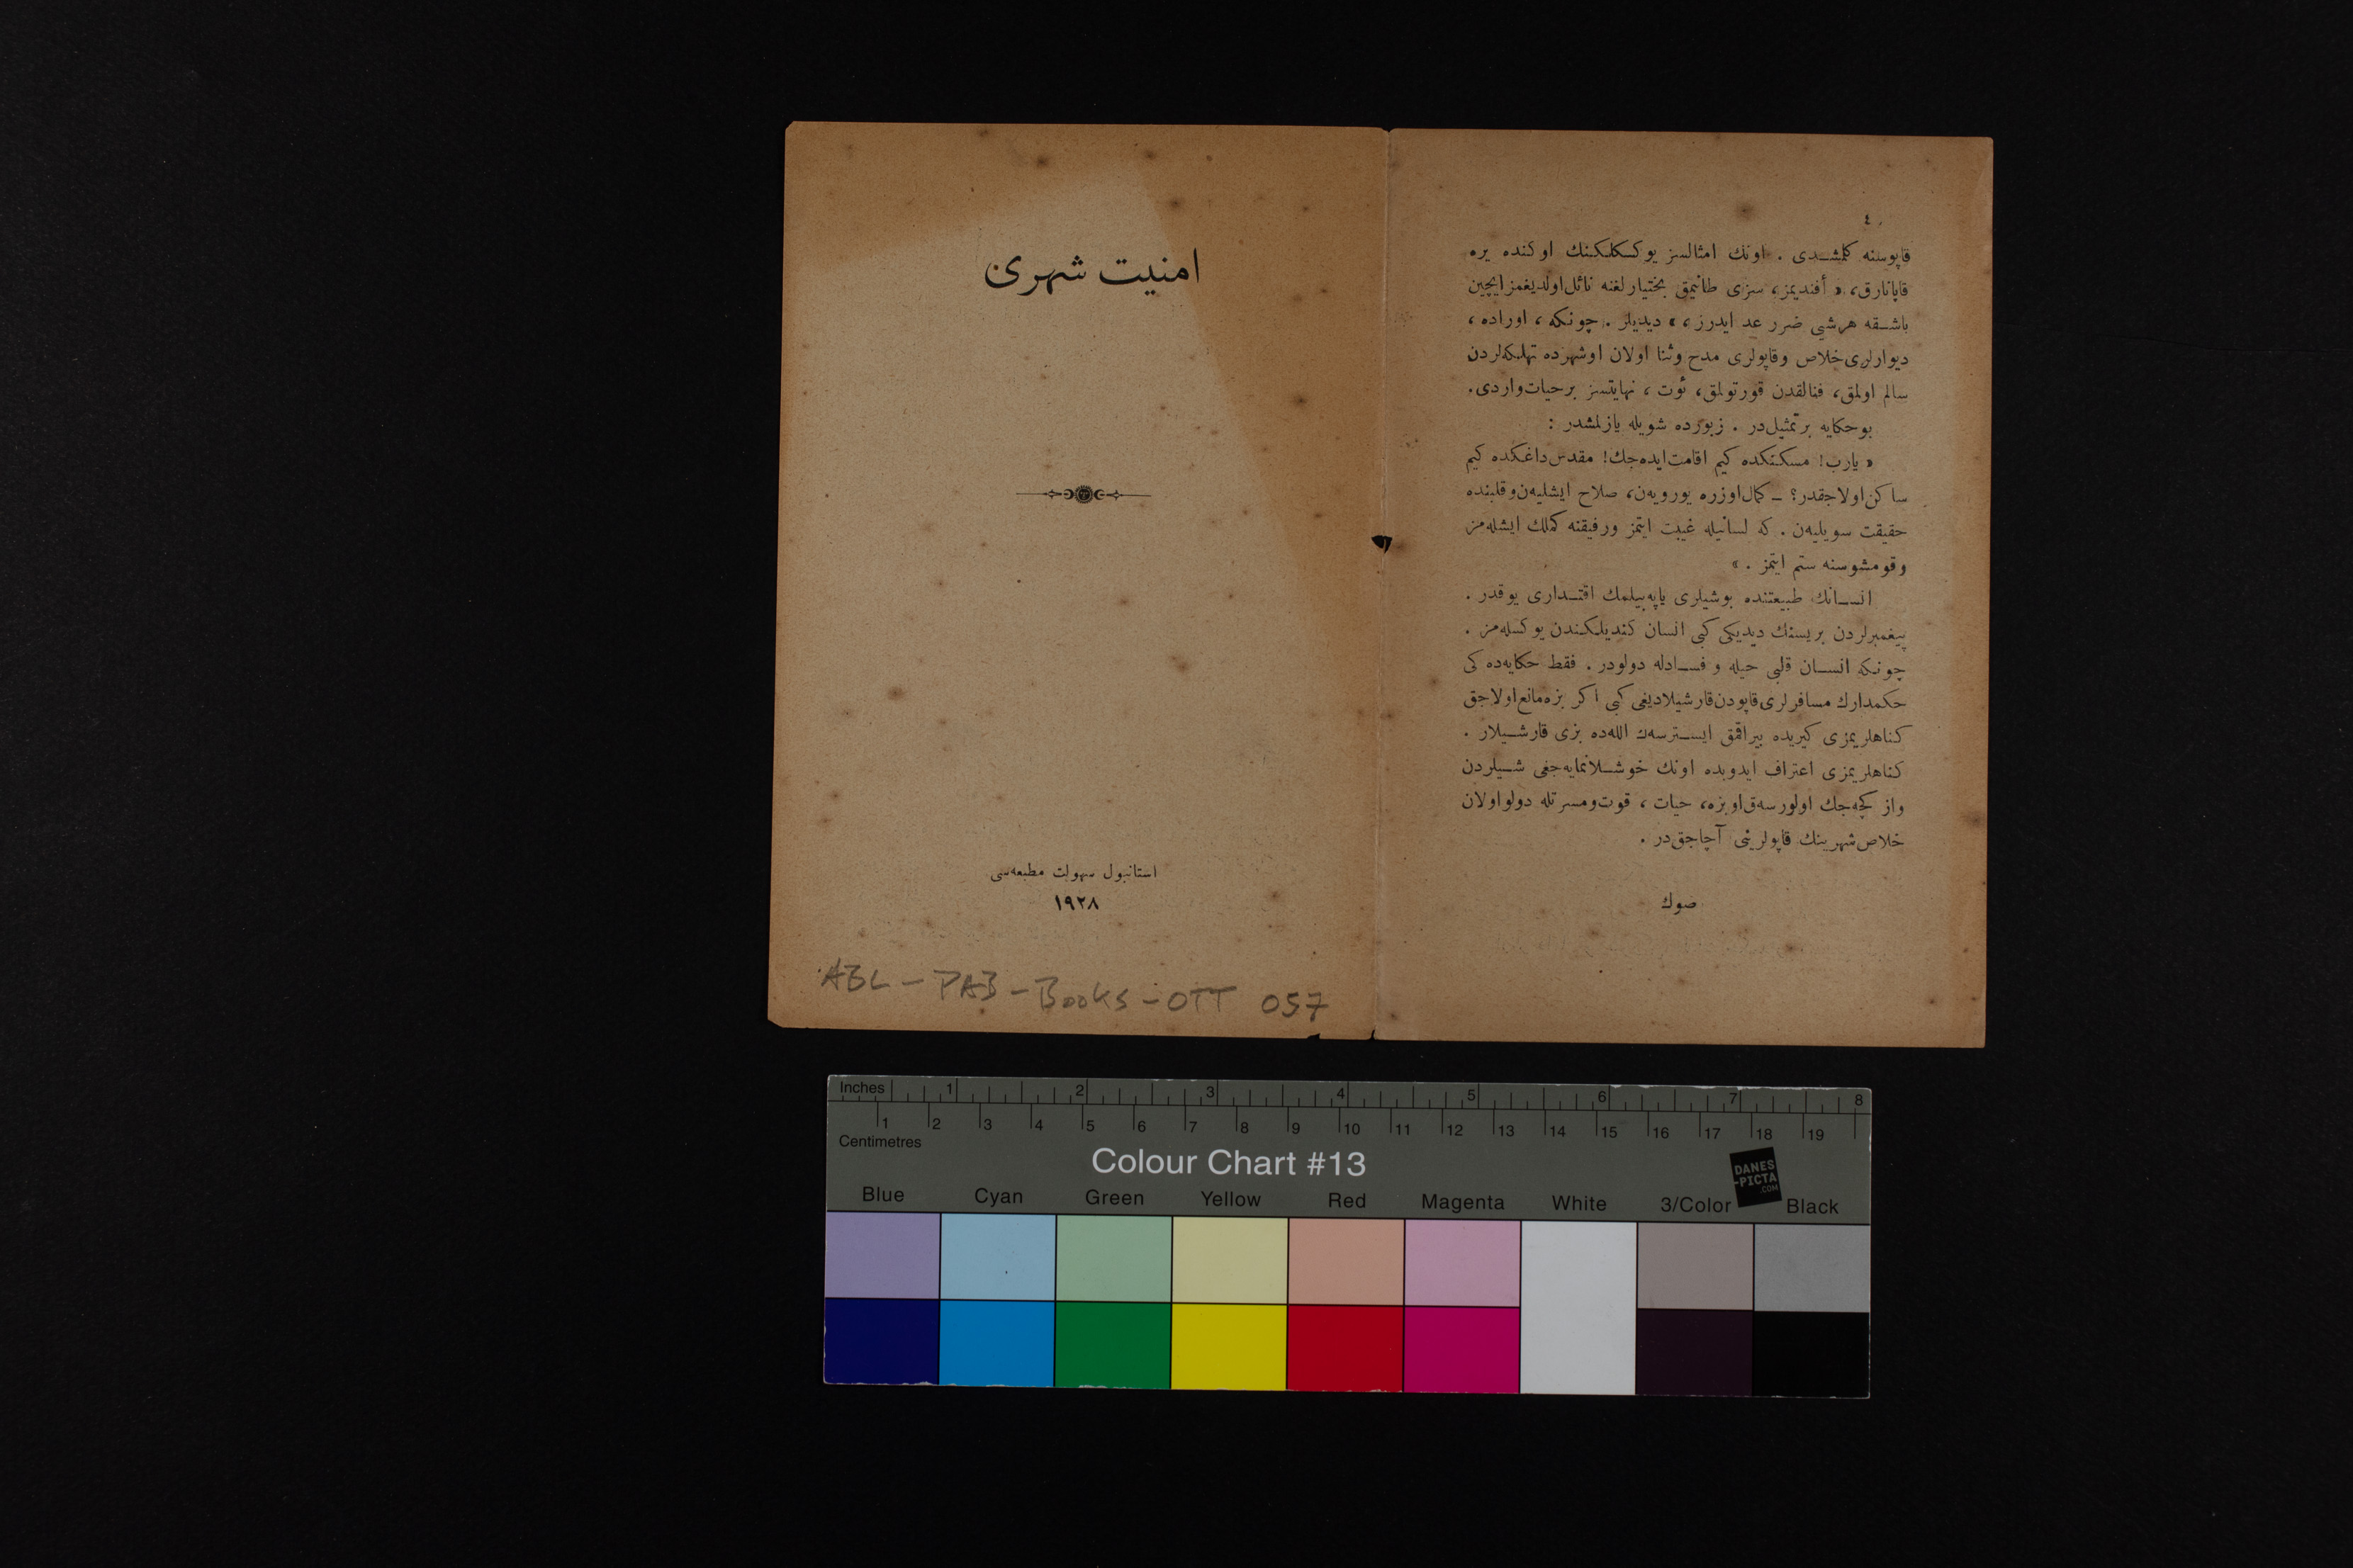 امنیت شهری
استانبول سهولت مطبعه‌سی
١٩٢٨
ABL - PAB - Books - OTT 057
٤
قاپوسنه کلمشـدی . اونك امثالسز یوکسکلکینك اوکنده یره
قاپانارق، « أفندیمز، سزی طانیمق بختیارلغنه نائل اولدیغمز ایچین
باشـقه هرشیی ضرر عد ایدرز، » دیدیلر . چونکه ، اوراده ،
دیوارلری خلاص وقاپولری مدح وثنا اولان اوشهرده تهلکه‌لردن
سالم اولمق، فنالقدن قورتولمق، ئوت ، نهایتسز برحیات واردی.
بوحکایه بر تمثیل‌در . زبورده شویله یازلمشدر :
« یارب! مسکنکده کیم اقامت ایده‌جك! مقدس داغکده کیم
ساکن اولاجقدر؟ ـ کمال اوزره یورویه‌ن، صلاح ایشلیه‌ن وقلبنده
حقیقت سویلیه‌ن . که لسانیله غیبت ایتمز ورفیقنه کملك ایشله‌مز
وقومشوسنه ستم ایتمز . »
انسـانك طبیعتنده بوشیلری یاپه‌بیلمك اقتـداری یوقدر .
پیغمبرلردن بریسنك دیدیکی کبی انسان کندیلکندن یوکسله‌مز .
چونکه انسـان قلبی حیله و فسـادله دولودر . فقط حکایه‌ده کی
حکمدارك مسافرلری قاپودن قارشیلادیغی کبی اکر بزه مانع اولاجق
کناهلریمزی کیریده بیراقمق ایسـترسه‌ك الله‌ده بزی قارشـیلار .
کناهلریمزی اعتراف ایدوبده اونك خوشـلانمایه‌جغی شـیلردن
واز کچه‌جك اولورسه‌ق او بزه، حیات ، قوت ومسرتله دولو اولان
خلاص شهرینك قاپولرینی آچاجق‌در .
صوك
Inches 1 2 3 4 5 6 7 8
1 2 3 4 5 6 7 8 9 10 11 12 13 14 15 16 17 18 19
Centimetres
Colour Chart #13
DANES
-PICTA
.COM
Blue Cyan Green Yellow Red Magenta White 3/Color Black